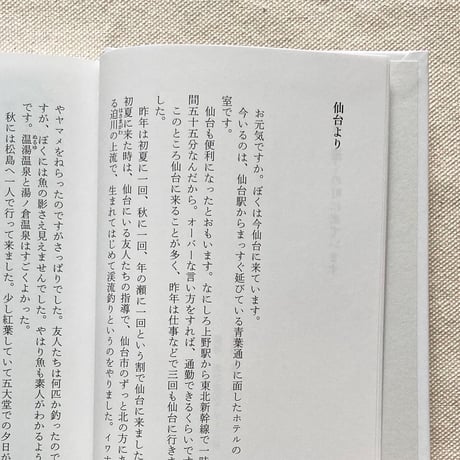 仙台より
お元気ですか。ぼくは今仙台に来ています。
今いるのは、仙台駅からまっすぐ延びている青葉通りに面したホテルの
室です。
仙台も便利になったとおもいます。なにしろ上野駅から東北新幹線で一時
間五十五分なんだから。オーバーな言い方をすれば、通勤できるくらいです
このところ仙台に来ることが多く、昨年は仕事などで三回も仙台に行きま
した。
昨年は初夏に一回、秋に一回、年の瀬に一回という割で仙台に来ました
初夏に来た時は、仙台にいる友人たちの指導で、仙台市のずっと北の方にあ
る迫川の上流で、生まれてはじめて渓流釣りというのをやりました。イワナ
はさまがわ
やヤマメをねらったのですがさっぱりでした。友人たちは何匹か釣ったので
すが、ぼくには魚の影さえ見えませんでした。やはり魚も素人がわかるよう
です。温湯温泉と湯ノ倉温泉はすごくよかった。
ぬるゆ
秋には松島へ一人で行って来ました。少し紅葉していて五大堂での夕日が